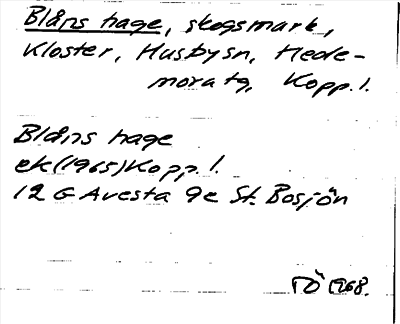 Blåns hage, skogsmark,
Kloster, Husbysn, Hede-
mora tg, Kopp. l.
Blåns hage
ek (1965) Kopp. l.
12 G Avesta 9e St. Bosjön
1968.